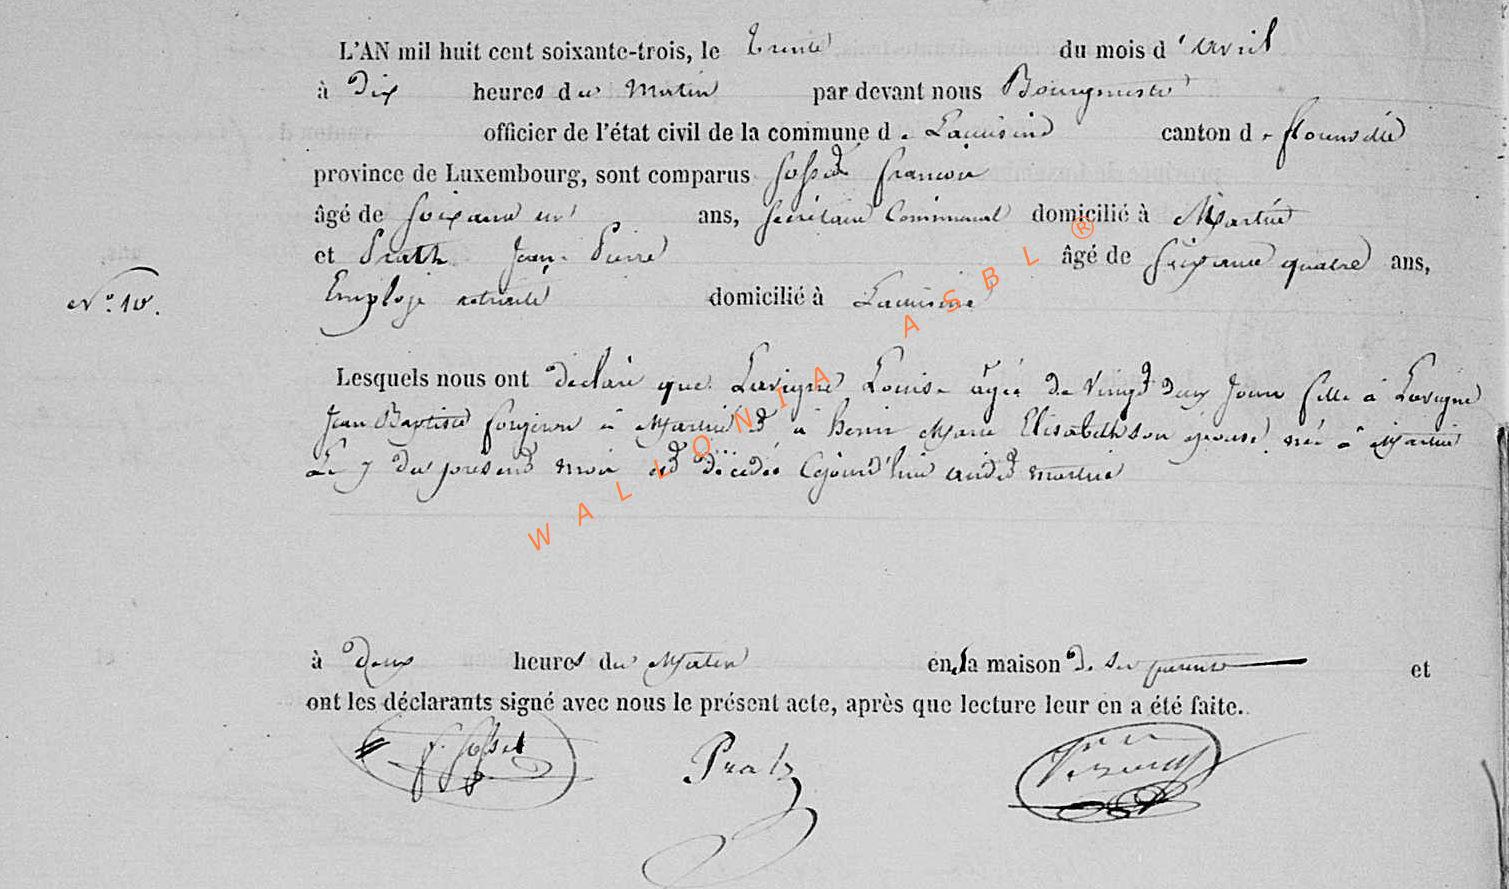 L'AN mil huit cent soixante-trois, le trente du mois d'avril
à Dix heures du Matin par devant nous Bourgmestre
officier de l'état civil de la commune de Lacuisine canton de florenville
province de Luxembourg, sont comparus François
âgé de Soixante un ans, Secrétaire Communal domicilié à Martué
et Prath Jean Pierre âgé de Soixante quatre ans,
Employé retraité domicilié à Lacuisine
N° 10.
Lesquels nous ont déclaré que Lavigne Louise âgée de Vingt deux Jours fille à Lavigne
Jean Baptiste forgeron à Martué et à henin Marie Elisabeth son épouse, née à Martué
Le 7 du présent mois est décédée Cejourd'hui audit martué
à deux heures du Matin en la maison de ses parents et
ont les déclarants signé avec nous le présent acte, après que lecture leur en a été faite.
Prath
WALLONIA ASBL ®